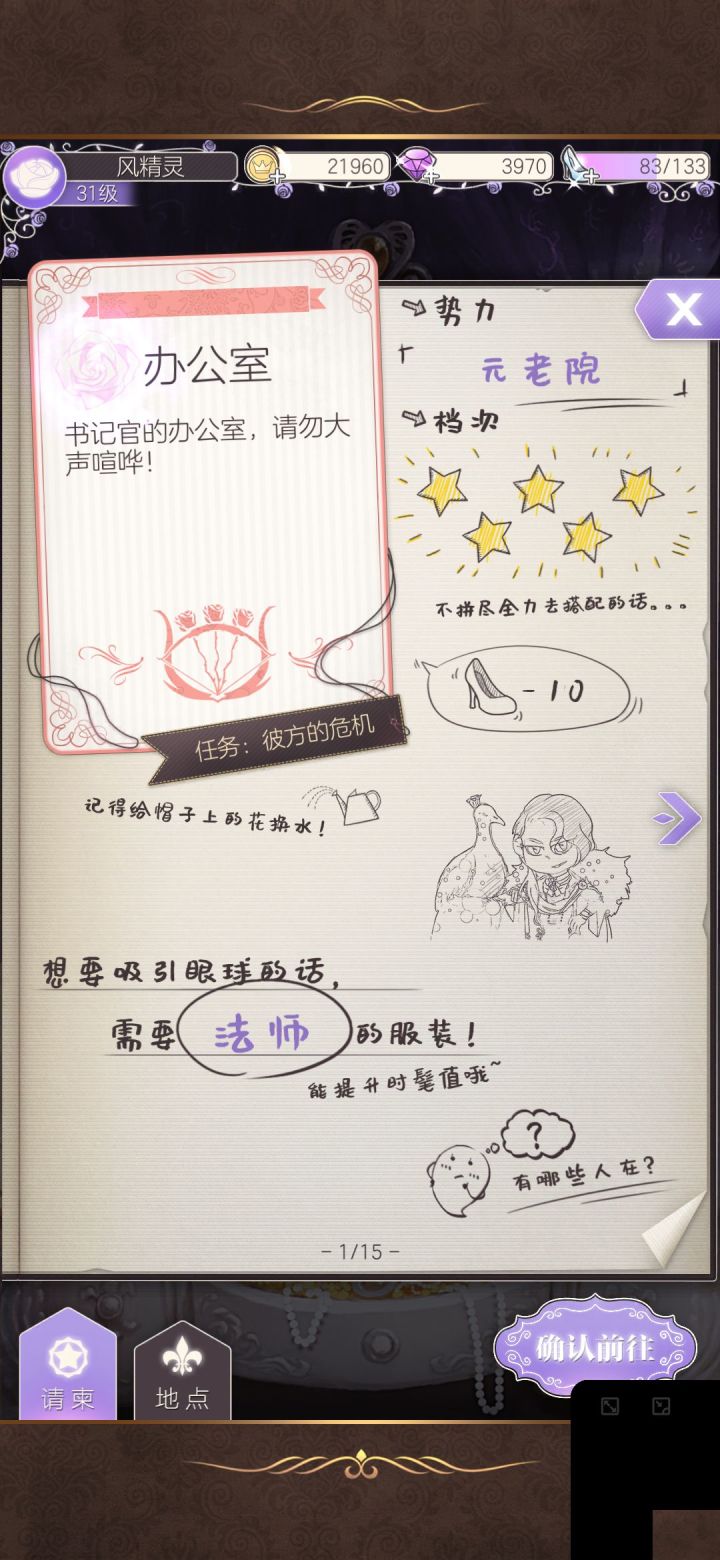 风精灵
31级
21960
3970
83/133
办公室
书记官的办公室，请勿大
声喧哗！
任务：彼方的危机
势力
元老院
档次
不拼尽全力去搭配的话。。。
-10
记得给帽子上的花换水！
想要吸引眼球的话，
需要法师的服装！
能提升时髦值哦~
?
有哪些人在？
- 1/15 -
请柬
地点
确认前往